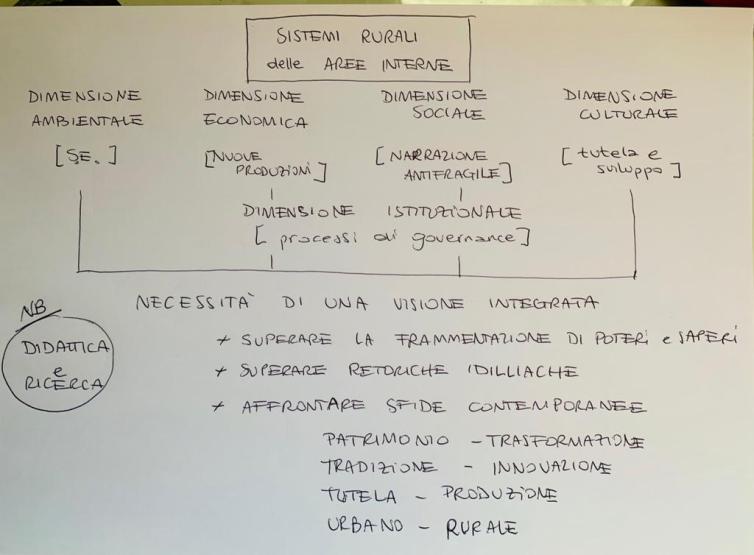 SISTEMI RURALI
delle AREE INTERNE
DIMENSIONE AMBIENTALE
[SE.]
DIMENSIONE ECONOMICA
[NUOVE PRODUZIONI]
DIMENSIONE SOCIALE
[NARRAZIONE ANTIFRAGILE]
DIMENSIONE CULTURALE
[tutela e sviluppo]
DIMENSIONE ISTITUZIONALE
[processi di governance]
NECESSITÀ DI UNA VISIONE INTEGRATA
NB
DIDATTICA
e
RICERCA
+ SUPERARE LA FRAMMENTAZIONE DI POTERI e SAPERI
+ SUPERARE RETORICHE IDILLIACHE
+ AFFRONTARE SFIDE CONTEMPORANEE
PATRIMONIO - TRASFORMAZIONE
TRADIZIONE - INNOVAZIONE
TUTELA - PRODUZIONE
URBANO - RURALE